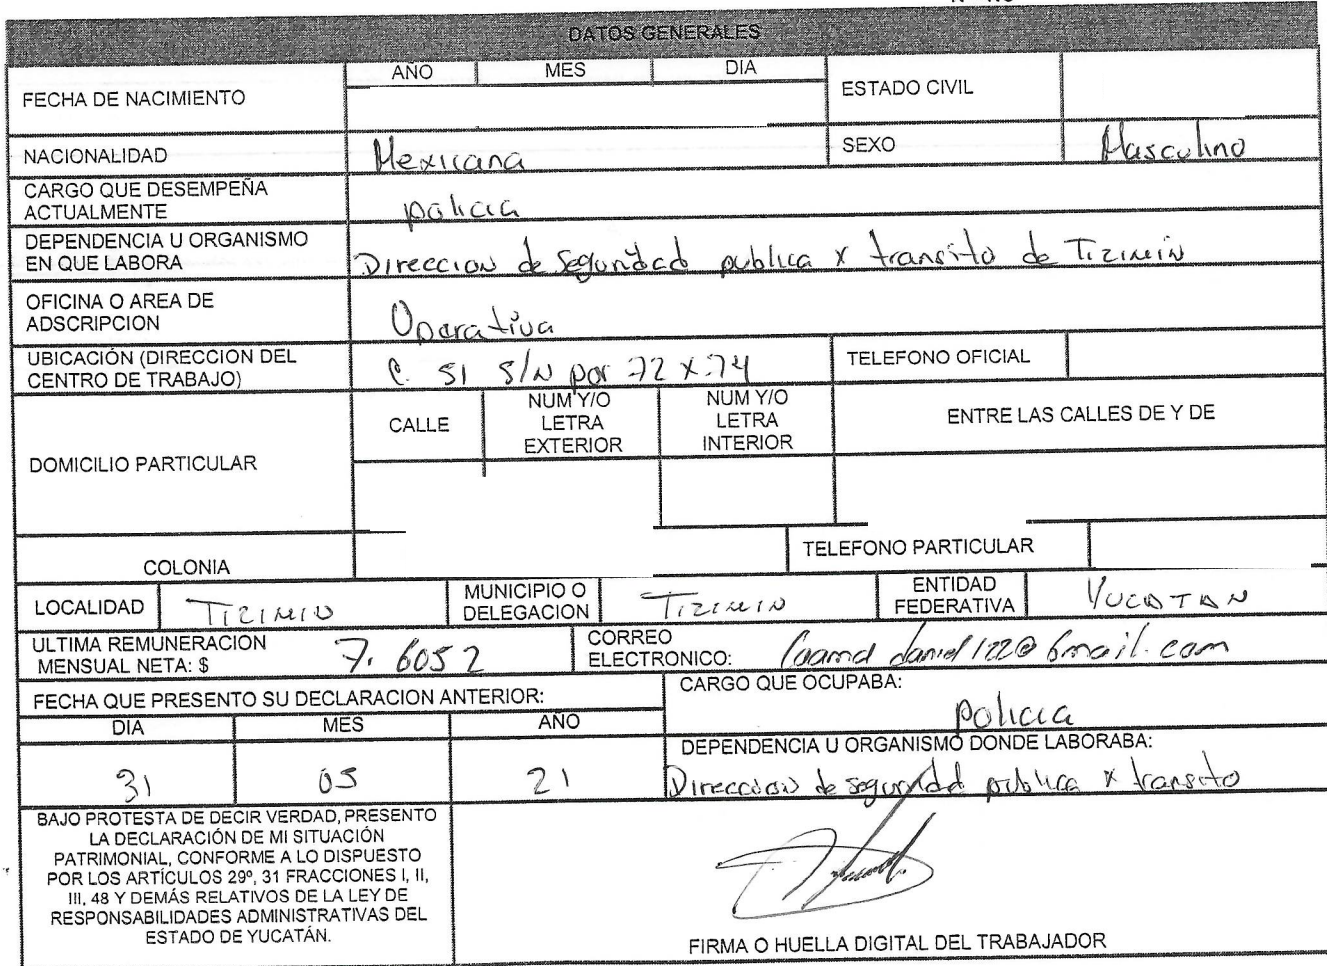 DATOS GENERALES
FECHA DE NACIMIENTO AÑO MES DIA ESTADO CIVIL
NACIONALIDAD Mexicana SEXO Masculino
CARGO QUE DESEMPEÑA ACTUALMENTE policia
DEPENDENCIA U ORGANISMO EN QUE LABORA Direccion de Seguridad publica x transito de Tizimin
OFICINA O AREA DE ADSCRIPCION Operativa
UBICACIÓN (DIRECCION DEL CENTRO DE TRABAJO) C. 51 S/N por 72 x 74 TELEFONO OFICIAL
DOMICILIO PARTICULAR CALLE NUM Y/O LETRA EXTERIOR NUM Y/O LETRA INTERIOR ENTRE LAS CALLES DE Y DE
COLONIA TELEFONO PARTICULAR
LOCALIDAD TIZIMIN MUNICIPIO O DELEGACION TIZIMIN ENTIDAD FEDERATIVA YUCATAN
ULTIMA REMUNERACION MENSUAL NETA: $ 7.6052 CORREO ELECTRONICO:
FECHA QUE PRESENTO SU DECLARACION ANTERIOR: CARGO QUE OCUPABA:
DIA MES AÑO policia
DEPENDENCIA U ORGANISMO DONDE LABORABA:
31 05 21 Direccion de seguridad publica x transito
BAJO PROTESTA DE DECIR VERDAD, PRESENTO
LA DECLARACIÓN DE MI SITUACIÓN
PATRIMONIAL, CONFORME A LO DISPUESTO
POR LOS ARTÍCULOS 29º, 31 FRACCIONES I, II,
III, 48 Y DEMÁS RELATIVOS DE LA LEY DE
RESPONSABILIDADES ADMINISTRATIVAS DEL
ESTADO DE YUCATÁN.
FIRMA O HUELLA DIGITAL DEL TRABAJADOR